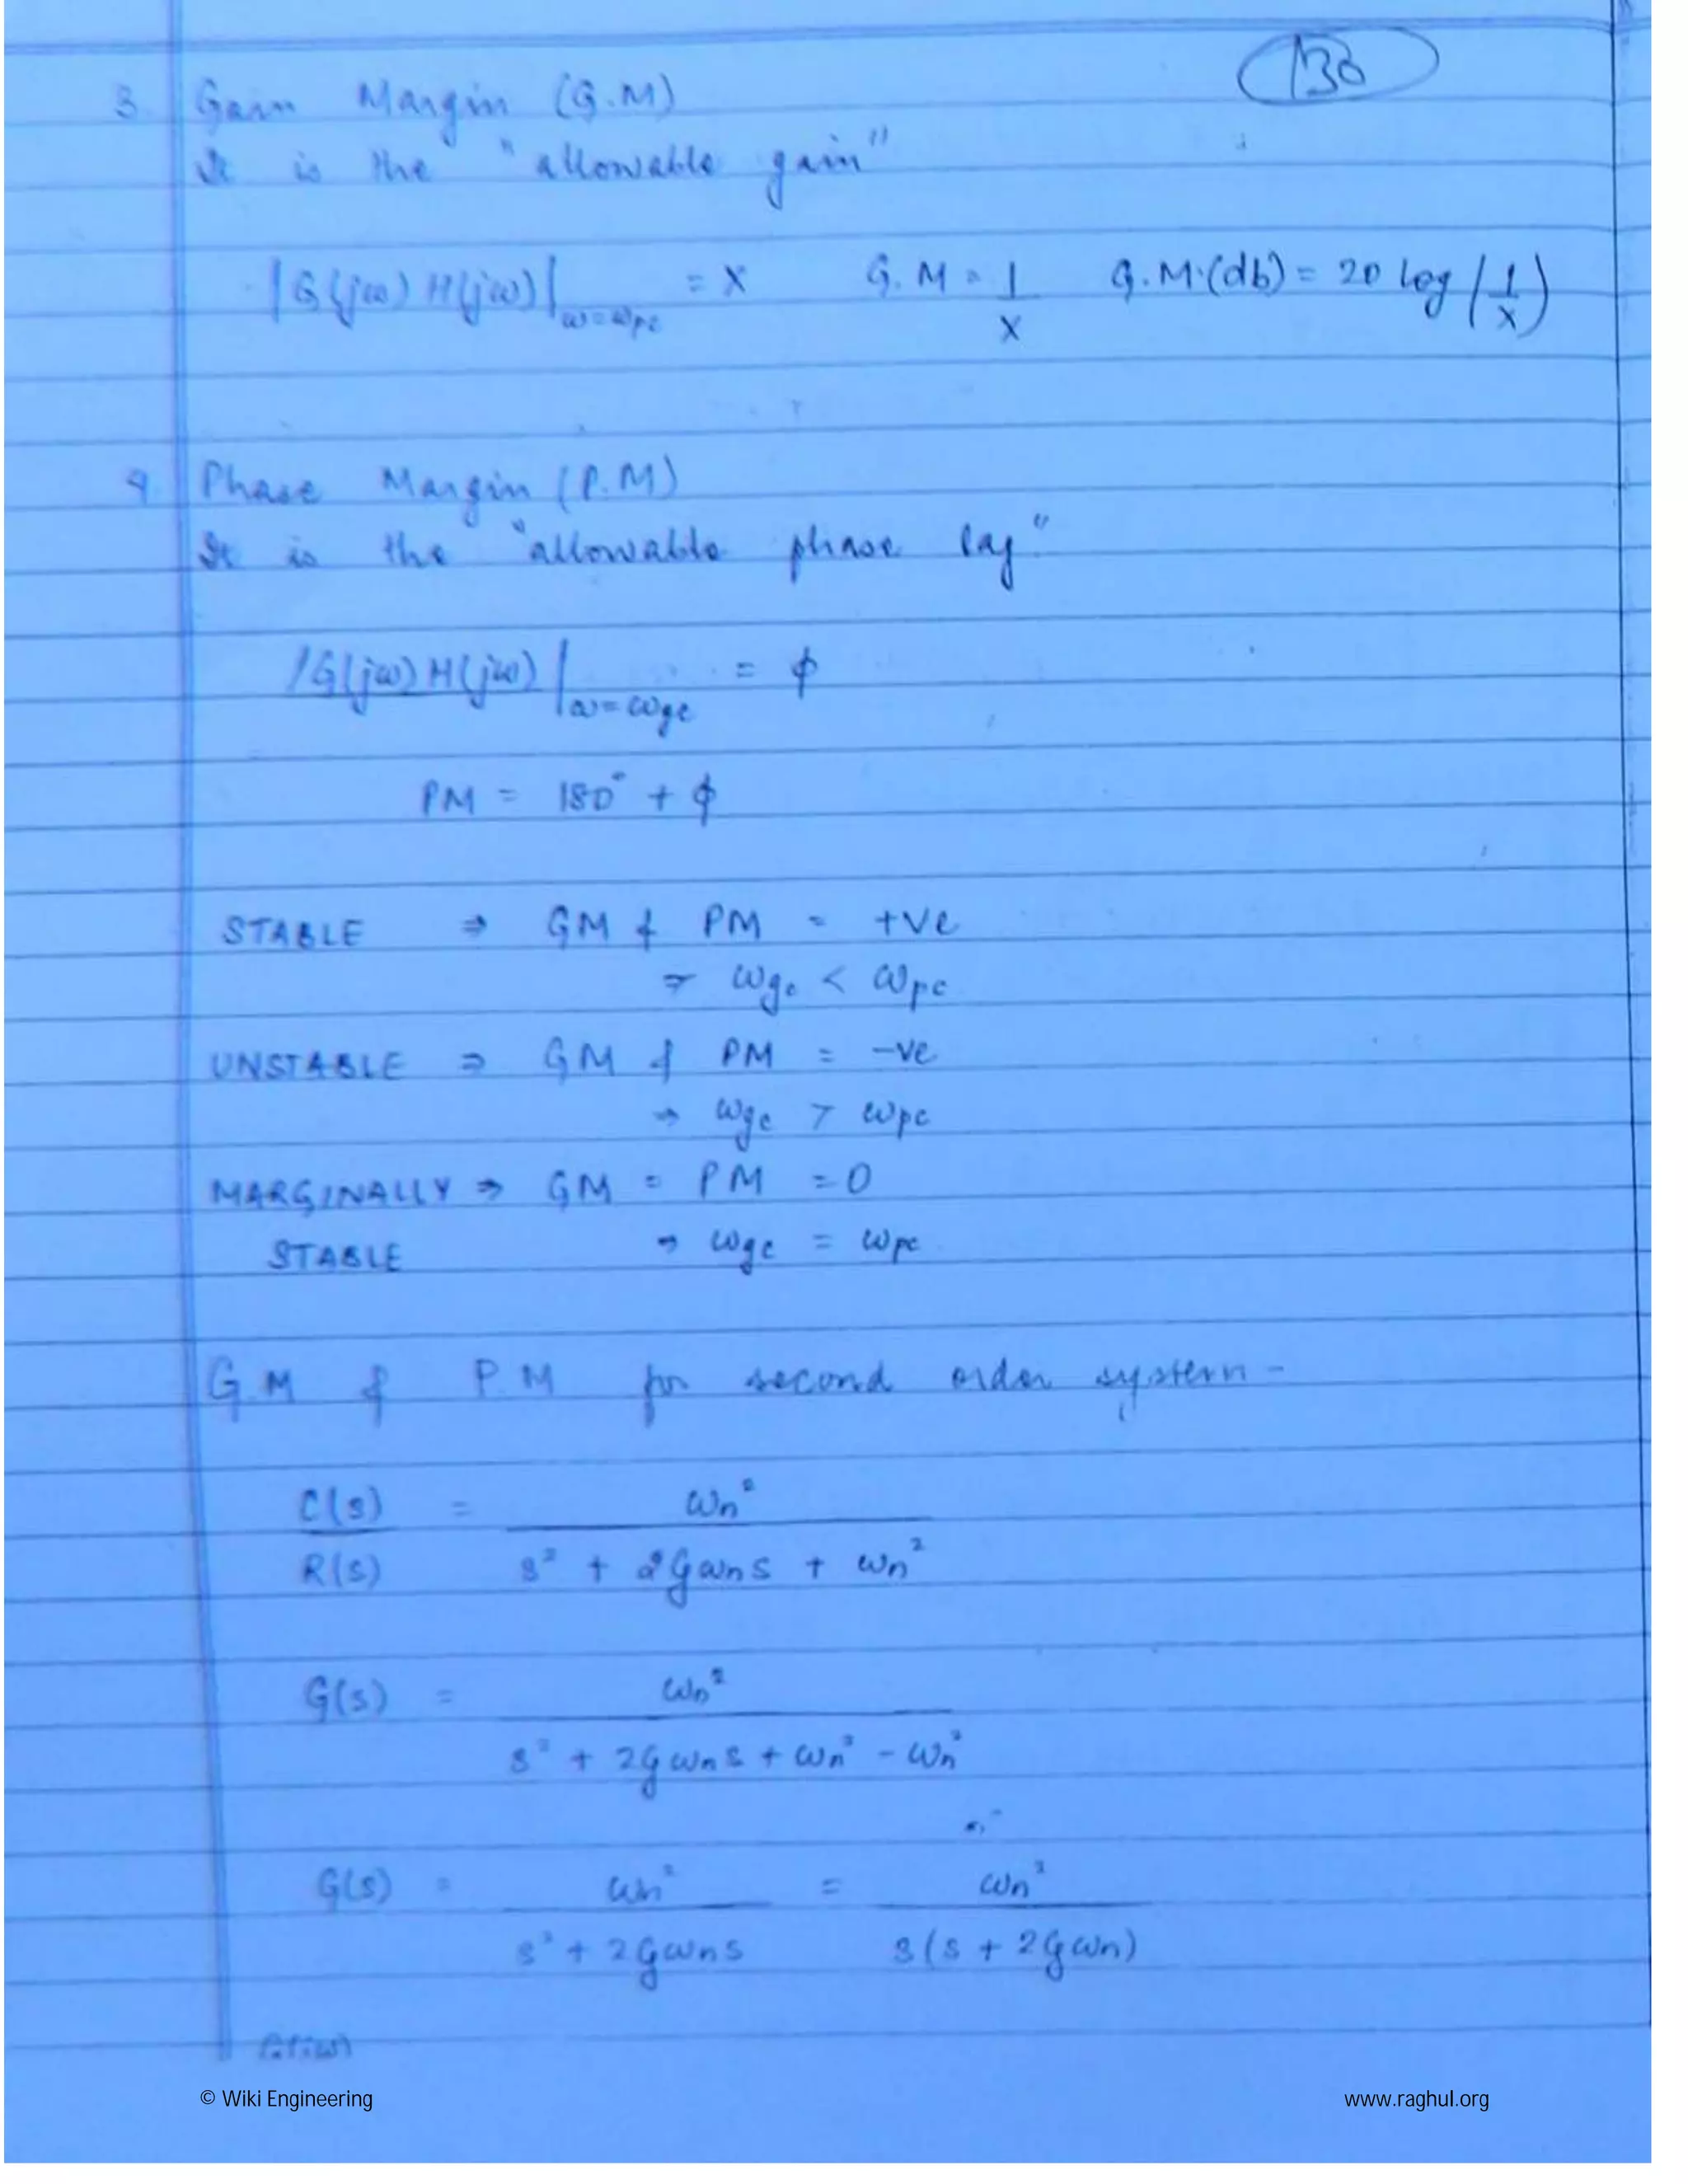 130
3. Gain Margin (G.M)
It is the "allowable gain"
|G(jω) H(jω)|ω=ωpc = X G.M = 1/X G.M.(db) = 20 log (1/X)
4. Phase Margin (P.M)
It is the "allowable phase lag"
∠G(jω) H(jω)|ω=ωgc = ϕ
PM = 180° + ϕ
STABLE ⇒ GM & PM = +ve
⇒ ωgc < ωpc
UNSTABLE ⇒ GM & PM = -ve
⇒ ωgc > ωpc
MARGINALLY ⇒ GM = PM = 0
STABLE ⇒ ωgc = ωpc
G.M & P.M for second order system -
C(s)/R(s) = ωn²/(s² + 2ζωns + ωn²)
G(s) = ωn²/(s² + 2ζωns + ωn² - ωn²)
G(s) = ωn²/(s² + 2ζωns) = ωn²/(s(s + 2ζωn))
© Wiki Engineering
www.raghul.org